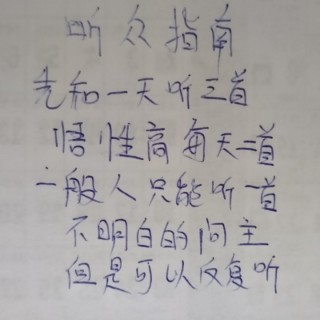 听众指南
先知一天听三首
悟性高每天二首
一般人只能听一首
不明白的问主
但是可以反复听